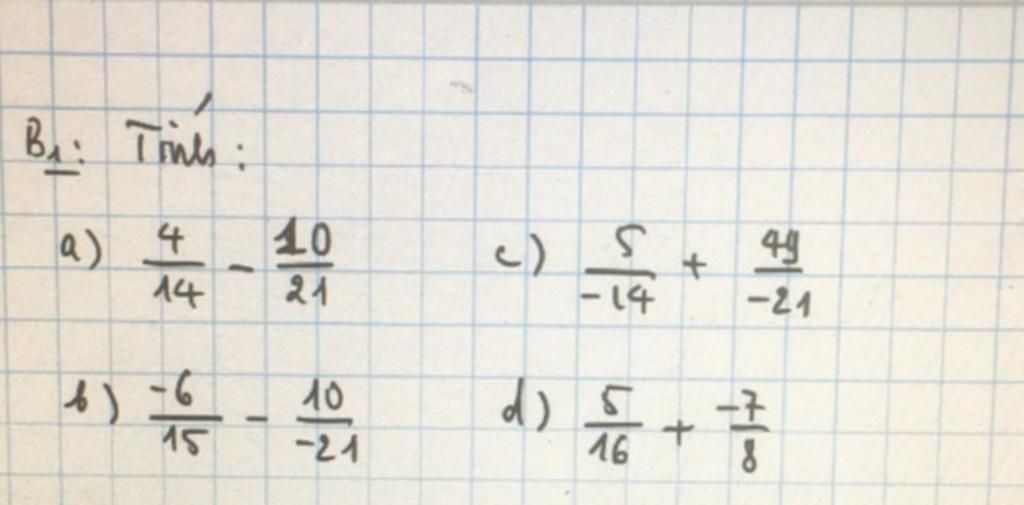 B1: Tính:
a) 4/14 - 10/21
c) 5/-14 + 49/-21
b) -6/15 - 10/-21
d) 5/16 + -7/8